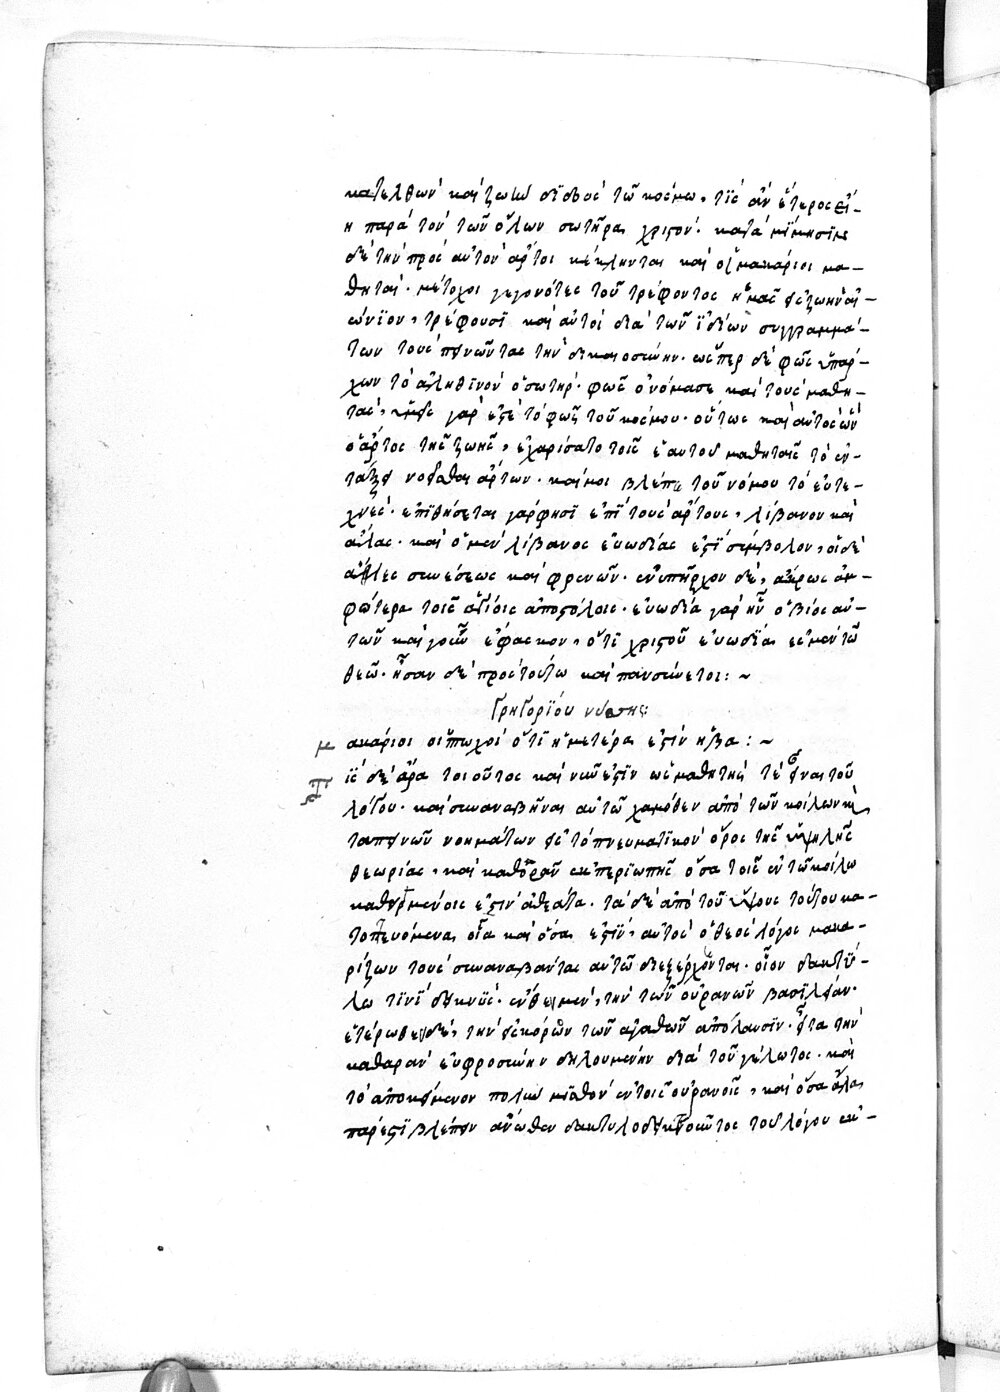 κατελθὼν καὶ ζωὴν διδοὺς τῷ κόσμῳ, τίς ἂν ἕτερος εἴ-
η παρὰ τὸν τῶν ὅλων σωτῆρα χριστόν· κατὰ μίμησιν
δὲ τὴν πρὸς αὐτὸν ἄρτοι κέκληνται καὶ οἱ μακάριοι μα-
θηταί· μέτοχοι γεγονότες τοῦ τρέφοντος ἡμᾶς εἰς ζωὴν αἰ-
ώνιον, τρέφουσι καὶ αὐτοὶ διὰ τῶν ἰδίων συγγραμμά-
των τοὺς πεινῶντας τὴν δικαιοσύνην· ὥσπερ δὲ φῶς ὑπάρ-
χων τὸ ἀληθινὸν ὁ σωτήρ· φῶς ὀνόμασε καὶ τοὺς μαθη-
τάς, ὑμεῖς γάρ ἐστε τὸ φῶς τοῦ κόσμου· οὕτως καὶ αὐτὸς ὢν
ὁ ἄρτος τῆς ζωῆς, ἐχαρίσατο τοῖς ἑαυτοῦ μαθηταῖς τὸ ἐν
τάξει νοεῖσθαι ἄρτων· καί μοι βλέπε τοῦ νόμου τὸ εὐτε-
χνές· ἐπιθήσεται γάρ φησι ἐπὶ τοὺς ἄρτους, λίβανον καὶ
ἅλας· καὶ ὁ μὲν λίβανος εὐωδίας ἐστὶ σύμβολον, οἱ δὲ
ἅλες συνέσεως καὶ φρενῶν· ἐνυπῆρχον δὲ,
φότερα τοῖς ἁγίοις ἀποστόλοις· εὐωδία γὰρ ἦν ὁ βίος αὐ-
τῶν καὶ γοῦν ἔφασκον, ὅτι χριστοῦ εὐωδία ἐσμὲν τῷ
θεῷ· ἦσαν δὲ πρὸς τούτω καὶ πανσύνετοι: ~
Γρηγορίου νύσσης:
μακάριοι οἱ πτωχοὶ ὅτι ἡμετέρα ἐστὶν ἡ βα: ~
τίς δὲ ἄρα τοιοῦτος καὶ νῦν ἐστὶν ὡς μαθητής τε εἶναι τοῦ
λόγου· καὶ συναναβῆναι αὐτῷ χαμόθεν ἀπὸ τῶν κοίλων καὶ
ταπεινῶν νοημάτων εἰς τὸ πνευματικὸν ὄρος τῆς ὑψηλῆς
θεωρίας, καὶ καθορᾶν ἐκ περιωπῆς ὅσα τοῖς ἐν τῷ κοίλω
καθειργμένοις ἐστὶν ἀθέατα· τὰ δὲ ἀπὸ τοῦ ὕψους τούτου κα-
τοπτευόμενα οἷα καὶ ὅσα ἐστίν, αὐτὸς ὁ θεὸς λόγος μακα-
ρίζων τοὺς συναναβάντας αὐτῷ διεξέρχονται· οἷον δακτύ-
λω τινὶ δεικνύς· ἔνθεν μὲν, τὴν τῶν οὐρανῶν βασιλείαν·
ἑτέρωθεν δὲ, τὴν τῶν ἀγαθῶν ἀπόλαυσιν· εἶτα τὴν
καθαρὰν εὐφροσύνην δηλουμένην διὰ τοῦ γέλωτος· καὶ
τὸ ἀποκείμενον πολὺν μισθὸν ἐν τοῖς οὐρανοῖς, καὶ ὅσα ἄλλα
πάρεστι βλέπειν ἄνωθεν δακτυλοδεικτοῦντος τοῦ λόγου ἐκ-